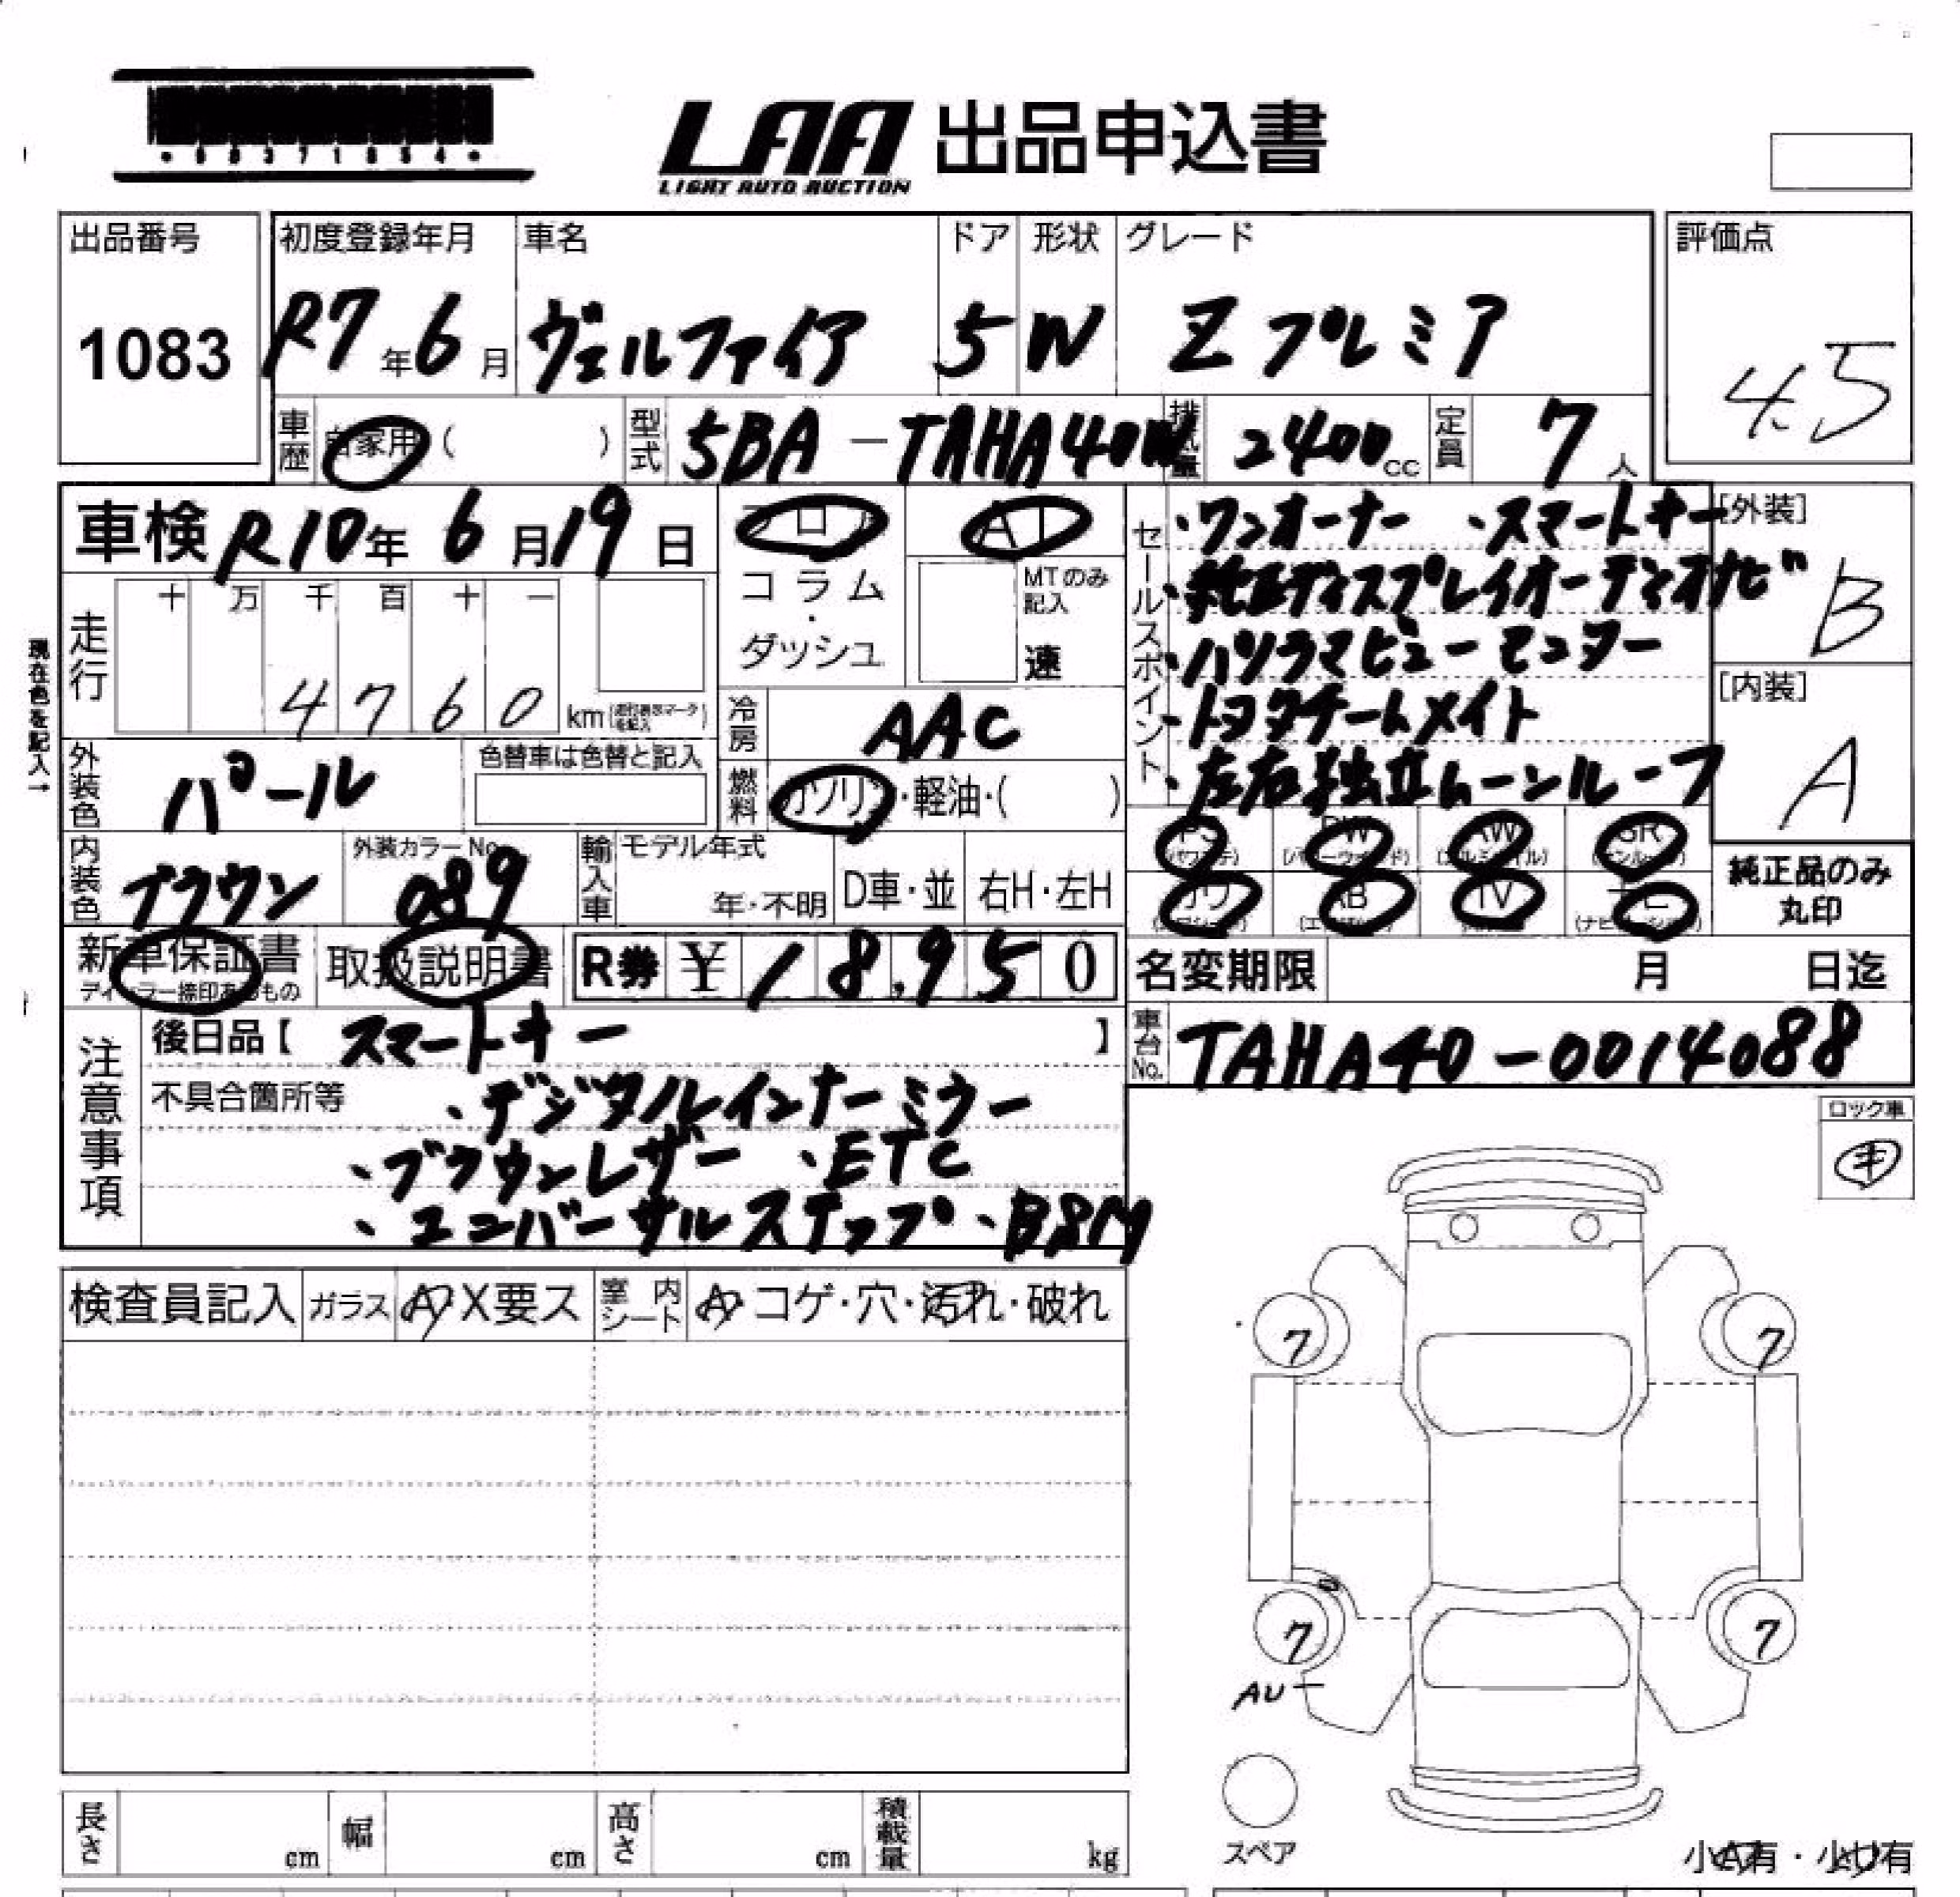 ・68371854・
LAA 出品申込書
LIGHT AUTO AUCTION
出品番号 初度登録年月 車名 ドア 形状 グレード 評価点
1083 R7年6月 ヴェルファイア 5 W Zプレミア 4.5
車歴 自家用 ( ) 型式 5BA-TAHA40W 排気量 2400cc 定員 7人
車検 R10年6月19日 フロア AT
コラム・ダッシュ MTのみ記入 速
セールスポイント
・ワンオーナー ・スマートキー
・純正ディスプレイオーディオナビ
・パノラマビューモニター
・トヨタチームメイト
・左右独立ムーンルーフ
[外装] B
[内装] A
現在色を記入→
走行 十 万 千 百 十 一
4760 km
冷房 AAC
外装色 パール 色替車は色替と記入
燃料 ガソリン・軽油・( )
内装色 ブラウン 外装カラーNo. 089
輸入車 モデル年式 年・不明 D車・並 右H・左H
PS (パワステ) PW (パワーウィンド) AW (アルミホイル) SR (サンルーフ)
カワ AB TV ナビ (ナビゲーション)
純正品のみ丸印
新車保証書 ディーラー捺印あるもの 取扱説明書 R券 ¥18,950
名変期限 月 日迄
注意事項
後日品【 スマートキー 】
車台No. TAHA40-0014088
不具合箇所等 ・デジタルインナーミラー
・ブラウンレザー ・ETC
・ユニバーサルステップ ・BSM
ロック車
検査員記入 ガラス A X要ス 室内シート A コゲ・穴・汚れ・破れ
7 7
7 7
AU
スペア
長さ cm 幅 cm 高さ cm 積載量 kg
小A有・小U有